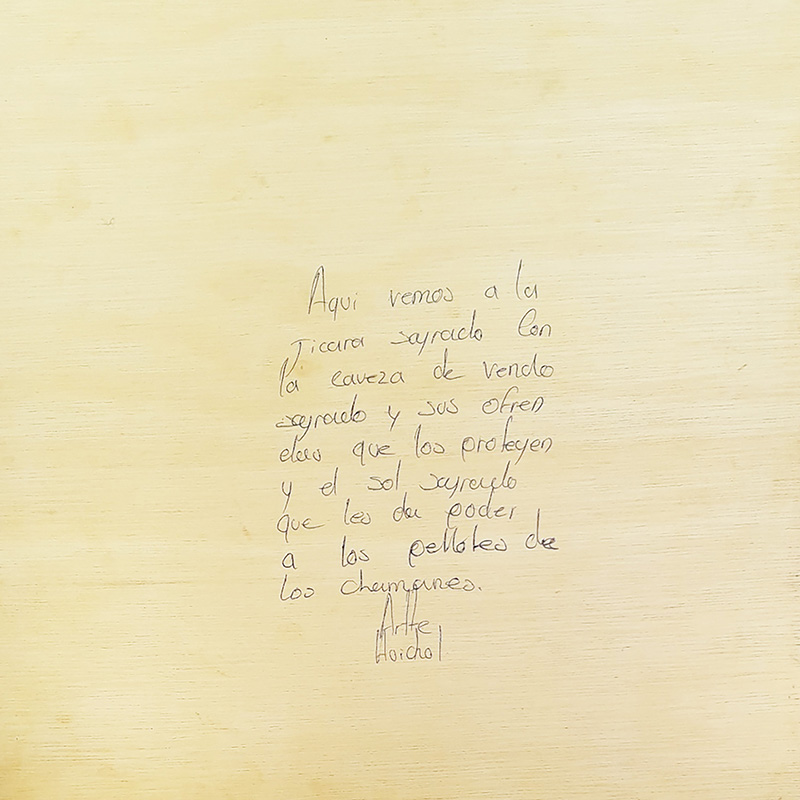 Aqui vemos a la
Jicara sagrado Con
la caveza de venado
sagrado y sus ofren
das que los protegen
y el sol sagrado
que les da poder
a los pellotes de
los chamanes.
Artte
Huichol